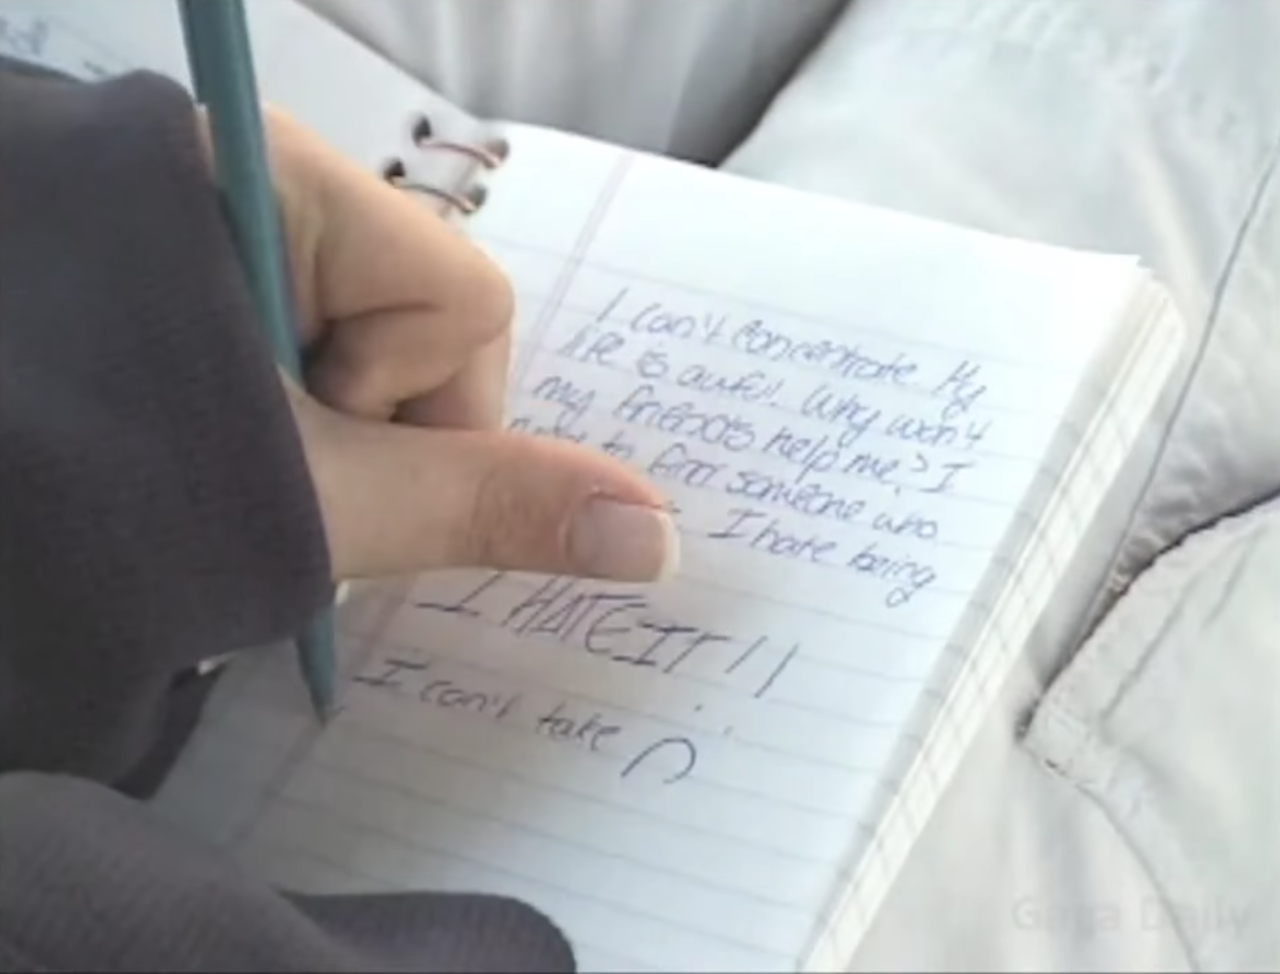 I can't concentrate My
life is awful. Why won't
my friends help me? I
to find someone who
I hate being
I HATE IT!!
I can't take
Daily